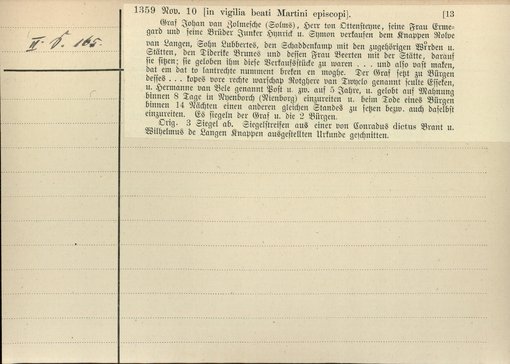 1359 Nov. 10 [in vigilia beati Martini episcopi]. [13
Graf Johan van Zolmesche (Solms), Herr ton Ottensteyne, seine Frau Erme-
gard und seine Brüder Junker Hynrick u. Symon verkaufen dem Knappen Rolve
van Langen, Sohn Lubbertes, den Schaddenkamp mit den zugehörigen Wörden u.
Stätten, den Diderike Brunes und dessen Frau Geerten mit der Stätte, darauf
sie sitzen; sie geloben ihm diese Verkaufsstücke zu waren . . . und also vast maken,
dat em dat to lantrechte numment breken en moghe. Der Graf setzt zu Bürgen
desses . . . kopes vore rechte warschap Rotghere van Twyclo genannt sculte Essken,
u. Hermanne van Vele genannt Post u. zw. auf 5 Jahre, u. gelobt auf Mahnung
binnen 8 Tage in Nyenborch (Nienborg) einzureiten u. beim Tode eines Bürgen
binnen 14 Nächten einen anderen gleichen Standes zu setzen bezw. auch daselbst
einzureiten. Es siegeln der Graf u. die 2 Bürgen.
Orig. 3 Siegel ab. Siegelstreifen aus einer von Conradus dictus Brant u.
Wilhelmus de Langen Knappen ausgestellten Urkunde geschnitten.
165.